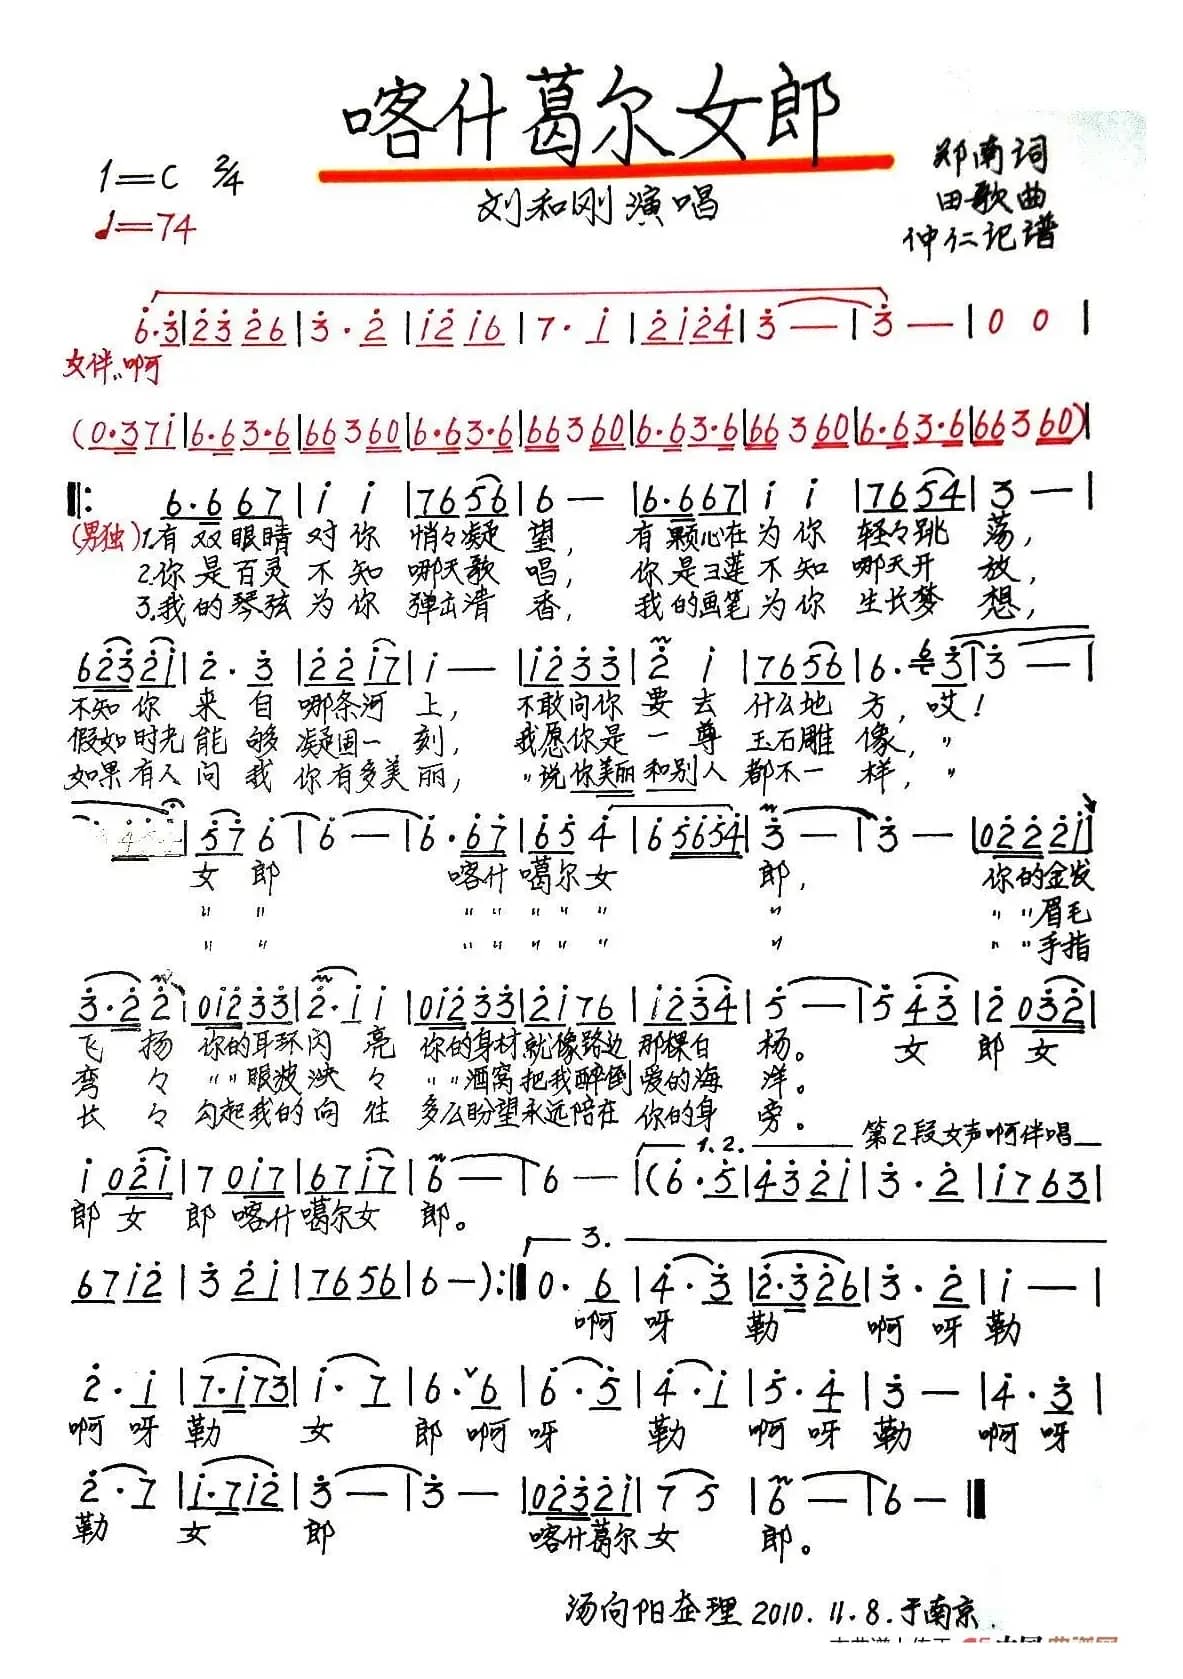 喀什葛尔女郎
1=C 2/4
♩=74
刘和刚演唱
郑南词
田歌曲
仲仁记谱
6·3|2326|3·2|1216|7·1|2124|3—|3—|0 0|
女伴:啊
(0·371|6·63·6|66360|6·63·6|66360|6·63·6|66360|6·63·6|66360)|
‖: 6·667|1 1|7656|6—|6·667|1 1|7654|3—|
(男独)1.有双眼睛对你悄々凝望，有颗心在为你轻々跳荡，
2.你是百灵不知哪天歌唱，你是雪莲不知哪天开放，
3.我的琴弦为你弹出清香，我的画笔为你生长梦想，
62321|2·3|2217|1—|1233|2 1|7656|6·6 3|3—|
不知你来自哪条河上，不敢问你要去什么地方，哎！
假如时光能够凝固一刻，我愿你是一尊玉石雕像，〃
如果有人问我你有多美丽，〃说你美丽和别人都不一样，〃
4|57 6|6—|6·67|65 4|6 5654|3—|3—|02221|
女郎 喀什噶尔女郎，你的金发
〃 〃 〃 〃 〃 〃 〃 〃 〃〃眉毛
〃 〃 〃 〃 〃 〃 〃 〃 〃〃手指
3·2 2|01233|2·1 1|01233|2176|1234|5—|5 43|2 032|
飞扬 你的耳环闪亮 你的身材就像路边那棵白杨。女郎女
弯々 〃〃眼波泱々 〃〃酒窝把我醉倒爱的海洋。
长々 勾起我的向往 多么盼望永远陪在你的身旁。
1.2.
第2段女声啊伴唱
1 021|7 017|6717|6—|6—|(6·5|4321|3·2|1763|
郎女郎喀什噶尔女郎。
3.
6712|3 21|7656|6—):‖0·6|4·3|2·326|3·2|1—|
啊呀勒啊呀勒
2·1|7·173|1·7|6·6|6·5|4·1|5·4|3—|4·3|
啊呀勒女郎啊呀勒啊呀勒啊呀
2·7|1·712|3—|3—|02321|7 5|6—|6—‖
勒女郎 喀什葛尔女郎。
汤向阳整理2010.11.8.于南京.